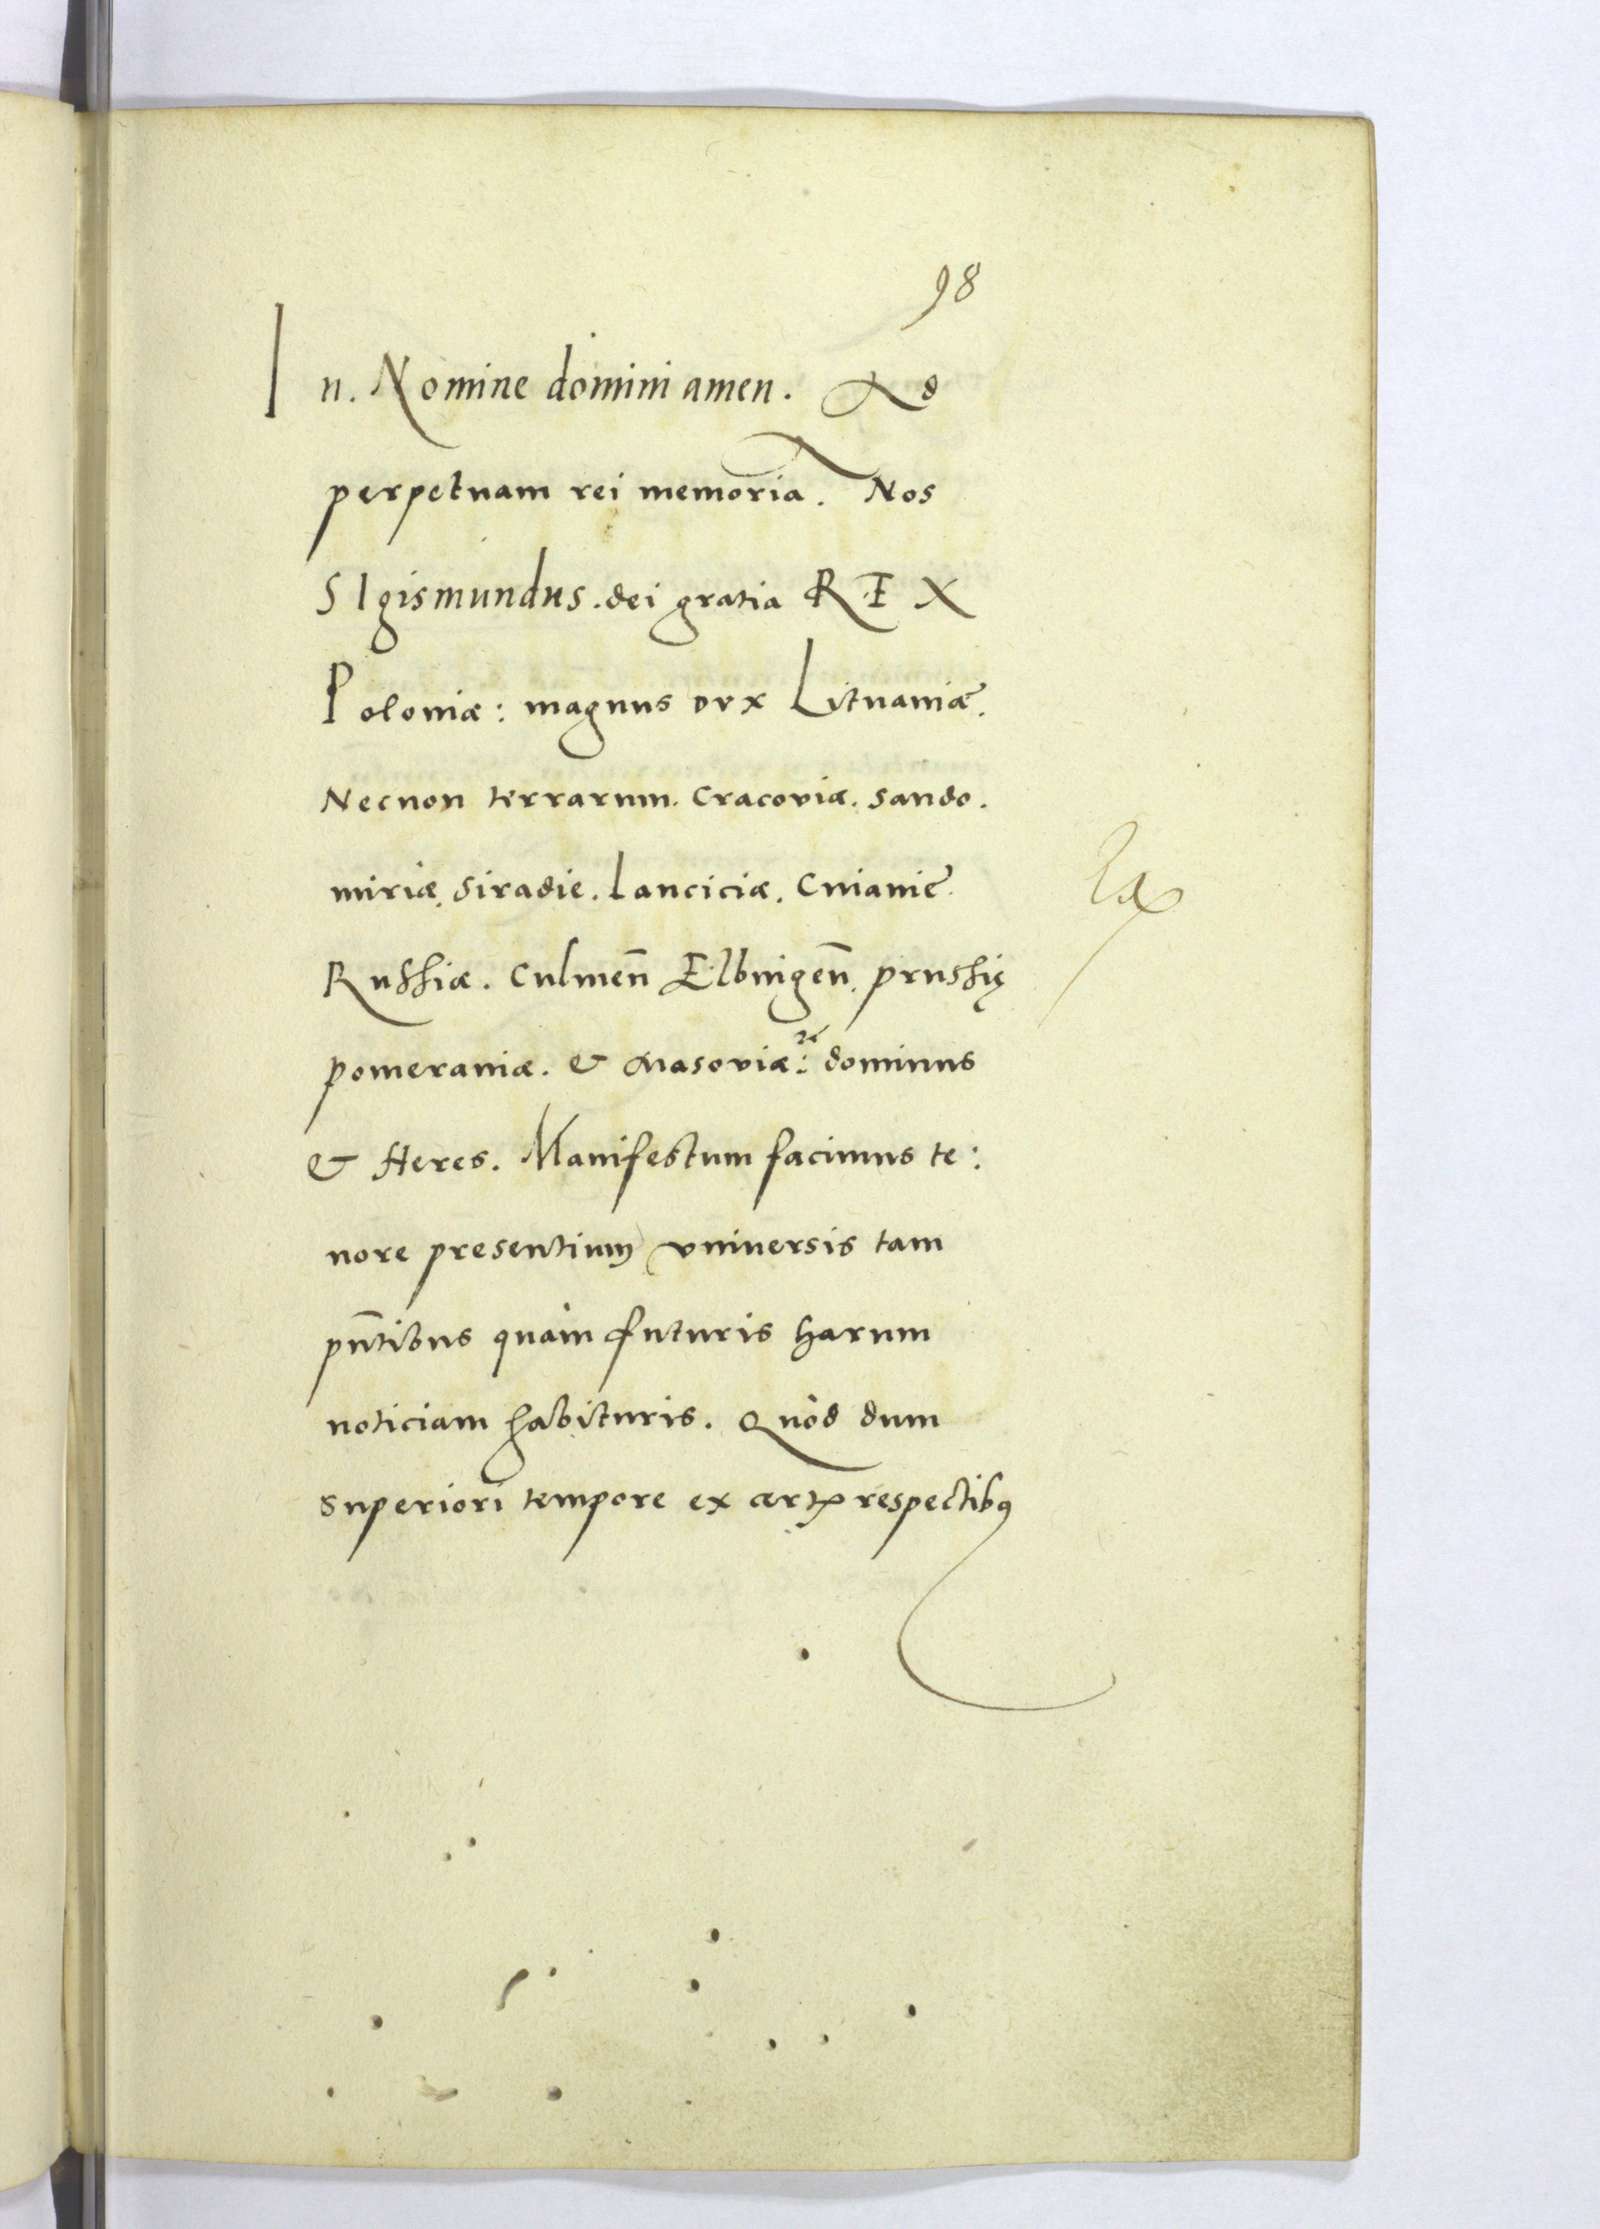 98
In. Nomine domini amen. Ad
perpetuam rei memoria. Nos
SIgismundus. dei gratia REX
Poloniæ: magnus DVX Lituaniæ.
Necnon terrarum. Cracoviæ. Sando.
miriæ. Siradie. Lanciciæ. Cuiauie
Russiæ. Culmen̄ Elbingen̄. prussię
pomeraniæ. & Masoviæ: dominus
& Heres. Manifestum facimus te:
nore presentium vniuersis tam
pn̄tibus quàm futuris harum
noticiam habituris. Quòd dum
superiori tempore ex cert respectibꝰ